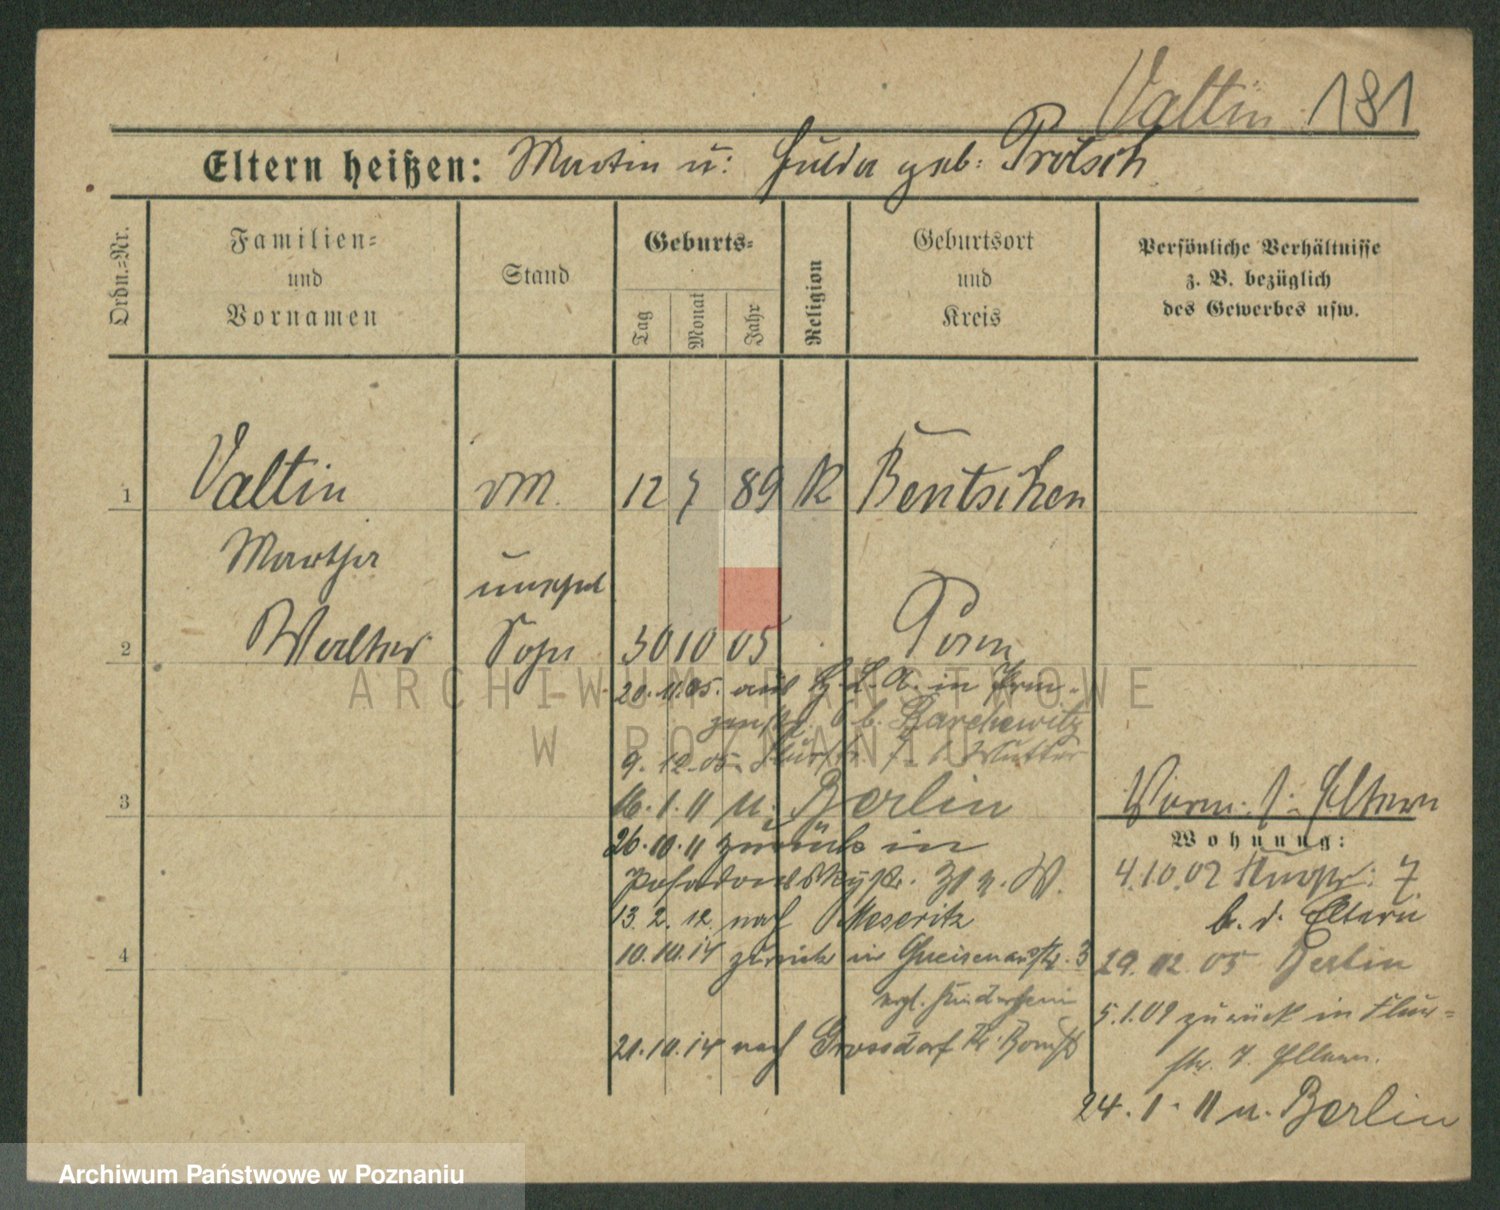 Valtin 181
Eltern heißen: Martin u: Hulda geb: Prötsch
Ordn.=Nr.
Familien=
und
Vornamen
Stand
Geburts=
Tag
Monat
Jahr
Religion
Geburtsort
und
Kreis
Persönliche Verhältnisse
z. B. bezüglich
des Gewerbes usw.
1 Valtin 12 7 89 K Bentschen
Martha
unehel
2 Walter Sohn 30 10 05 Posen
20.11.05. aus in
b. Barchewitz
9.12.05. 7. Mutter
16.1.11 n. Berlin
26.10.11 zurück in
31 n. W.
13.2.12. nach Meseritz
10.10.14 zurück in Gneisenaustr. 3
21.10.14 nach Grossdorf Kr. Bomst
3
4
Vorm. s. Eltern
Wohnung:
4.10.02 7
b. d. Eltern
29.12.05 Berlin
5.1.09 zurück in Flur=
str. 7. Eltern.
24.1.11 n. Berlin
ARCHIWUM PAŃSTWOWE
W POZNANIU
Archiwum Państwowe w Poznaniu